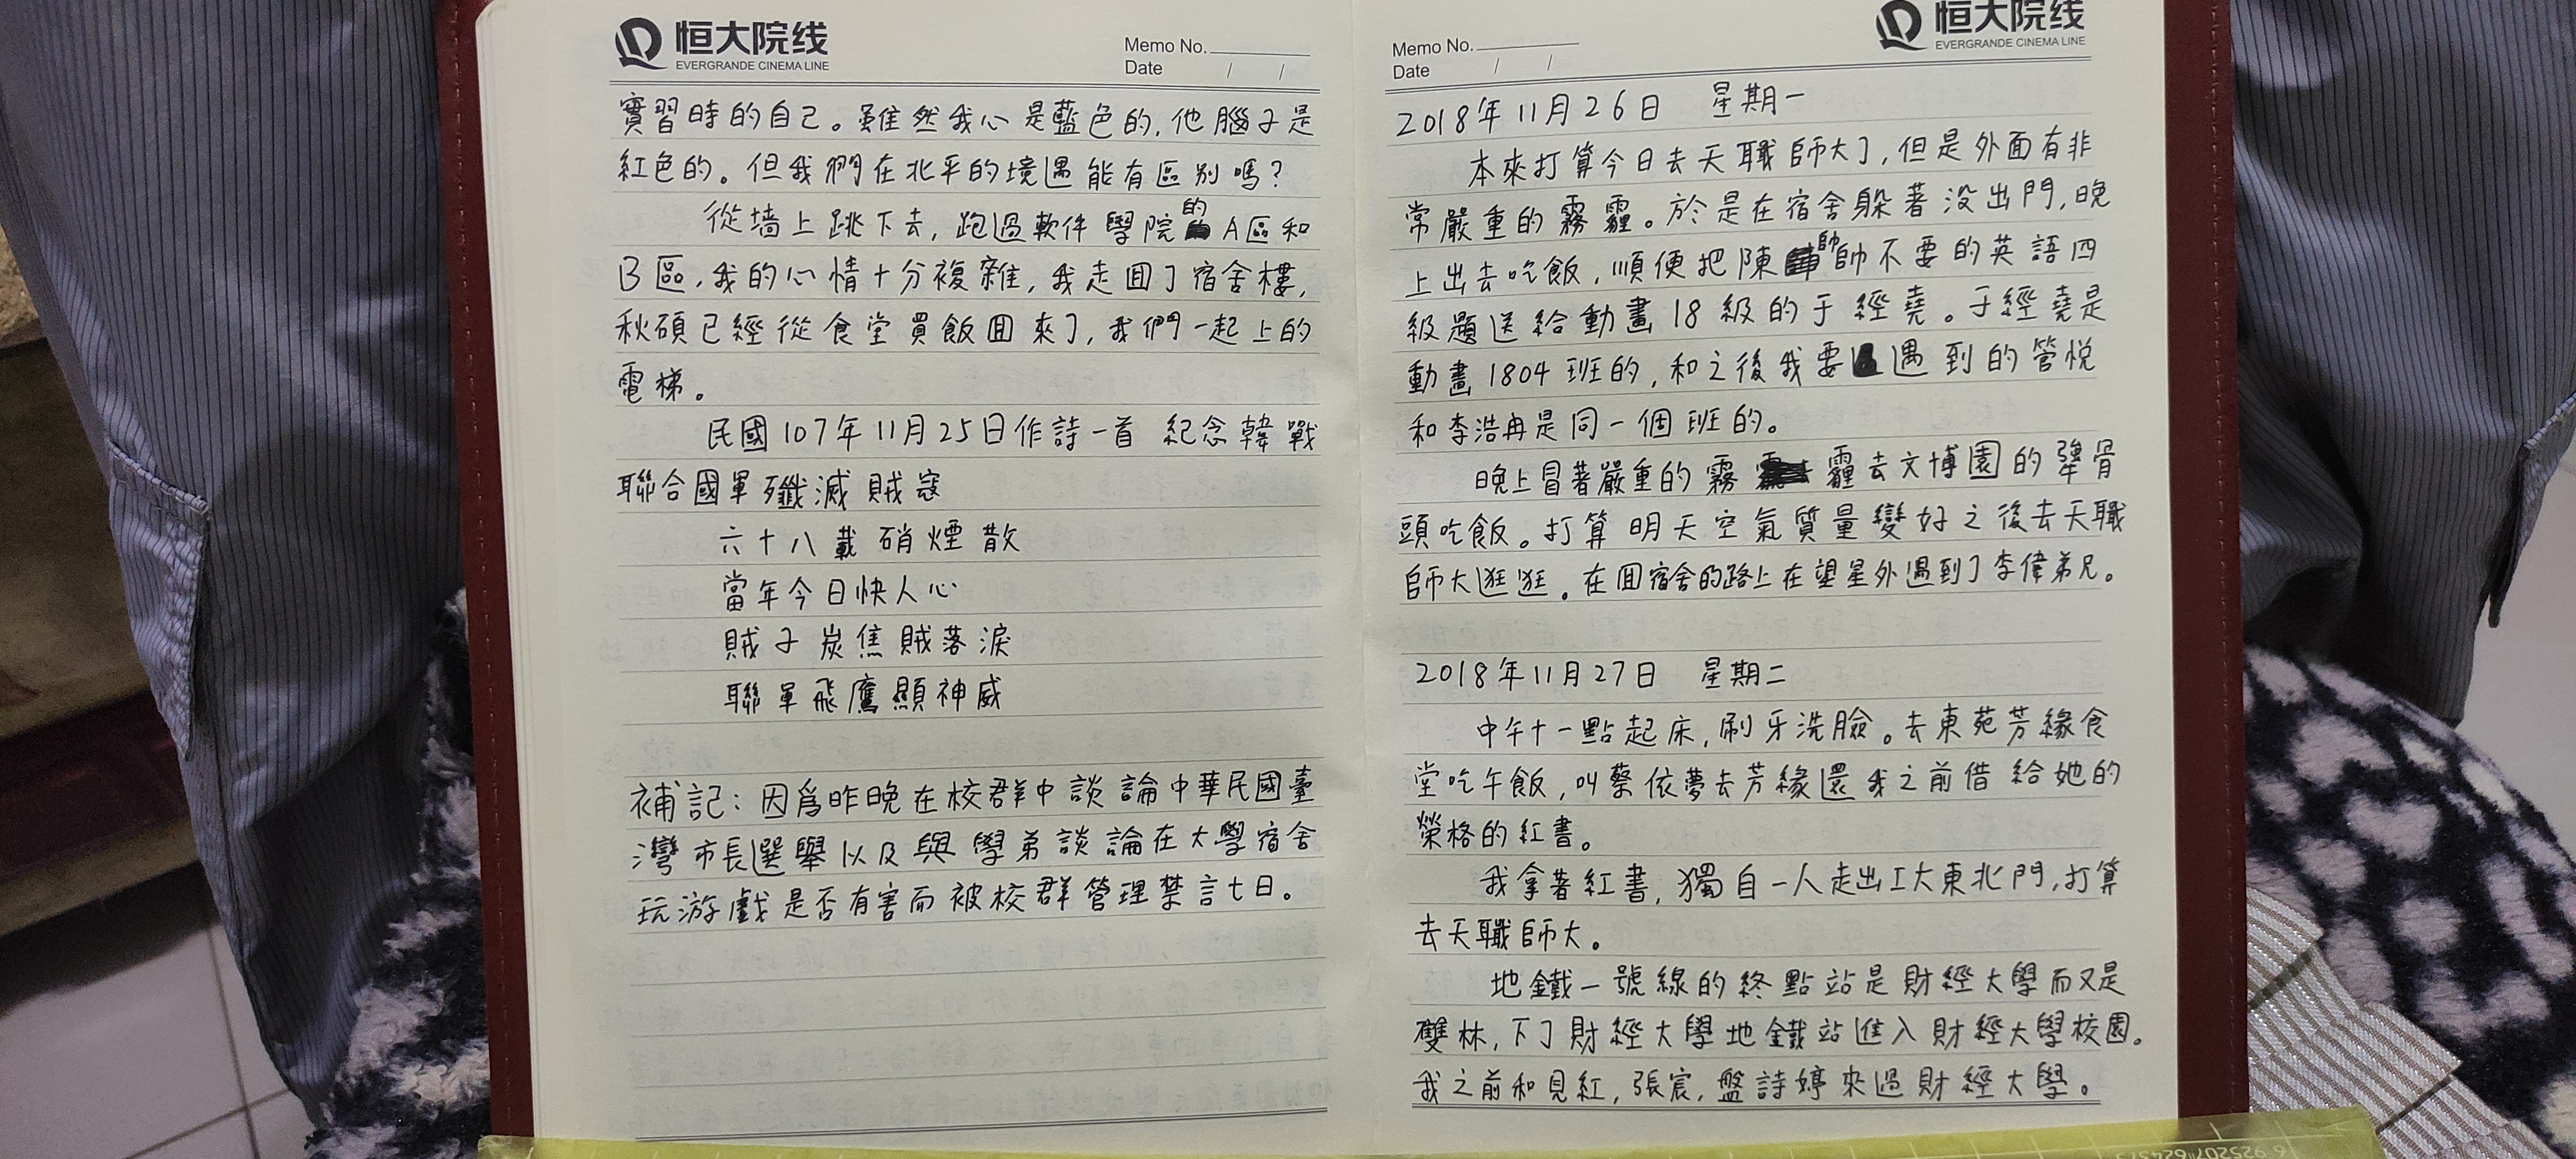 恒大院线
EVERGRANDE CINEMA LINE
Memo No.
Date / /
實習時的自己。雖然我心是藍色的,他腦子是
紅色的。但我們在北平的境遇能有區别嗎?
從墙上跳下去,跑過軟件學院的A區和
B區,我的心情十分複雜,我走囬了宿舍樓,
秋碩已經從食堂買飯囬來了,我們一起上的
電梯。
民國107年11月25日作詩一首 紀念韓戰
聯合國軍殲滅賊寇
六十八載硝煙散
當年今日快人心
賊子炭焦賊落淚
聯軍飛鷹顯神威
補記:因爲昨晚在校群中談論中華民國臺
灣市長選舉以及與學弟談論在大學宿舍
玩游戲是否有害而被校群管理禁言七日。
恒大院线
EVERGRANDE CINEMA LINE
Memo No.
Date / /
2018年11月26日 星期一
本來打算今日去天職師大了,但是外面有非
常嚴重的霧霾。於是在宿舍躲著没出門,晚
上出去吃飯,順便把陳帥帥不要的英語四
級題送給動畫18級的于經堯。于經堯是
動畫1804班的,和之後我要遇到的管悦
和李浩冉是同一個班的。
晚上冒著嚴重的霧霾去文博園的犟骨
頭吃飯。打算明天空氣質量變好之後去天職
師大逛逛。在囬宿舍的路上在望星外遇到了李偉弟兄。
2018年11月27日 星期二
中午十一點起床,刷牙洗臉。去東苑芳緣食
堂吃午飯,叫蔡依夢去芳緣還我之前借給她的
榮格的紅書。
我拿著紅書,獨自一人走出工大東北門,打算
去天職師大。
地鐵一號線的終點站是財經大學而又是
雙林,下了財經大學地鐵站進入財經大學校園。
我之前和見紅,張宸,盤詩婷來過財經大學。